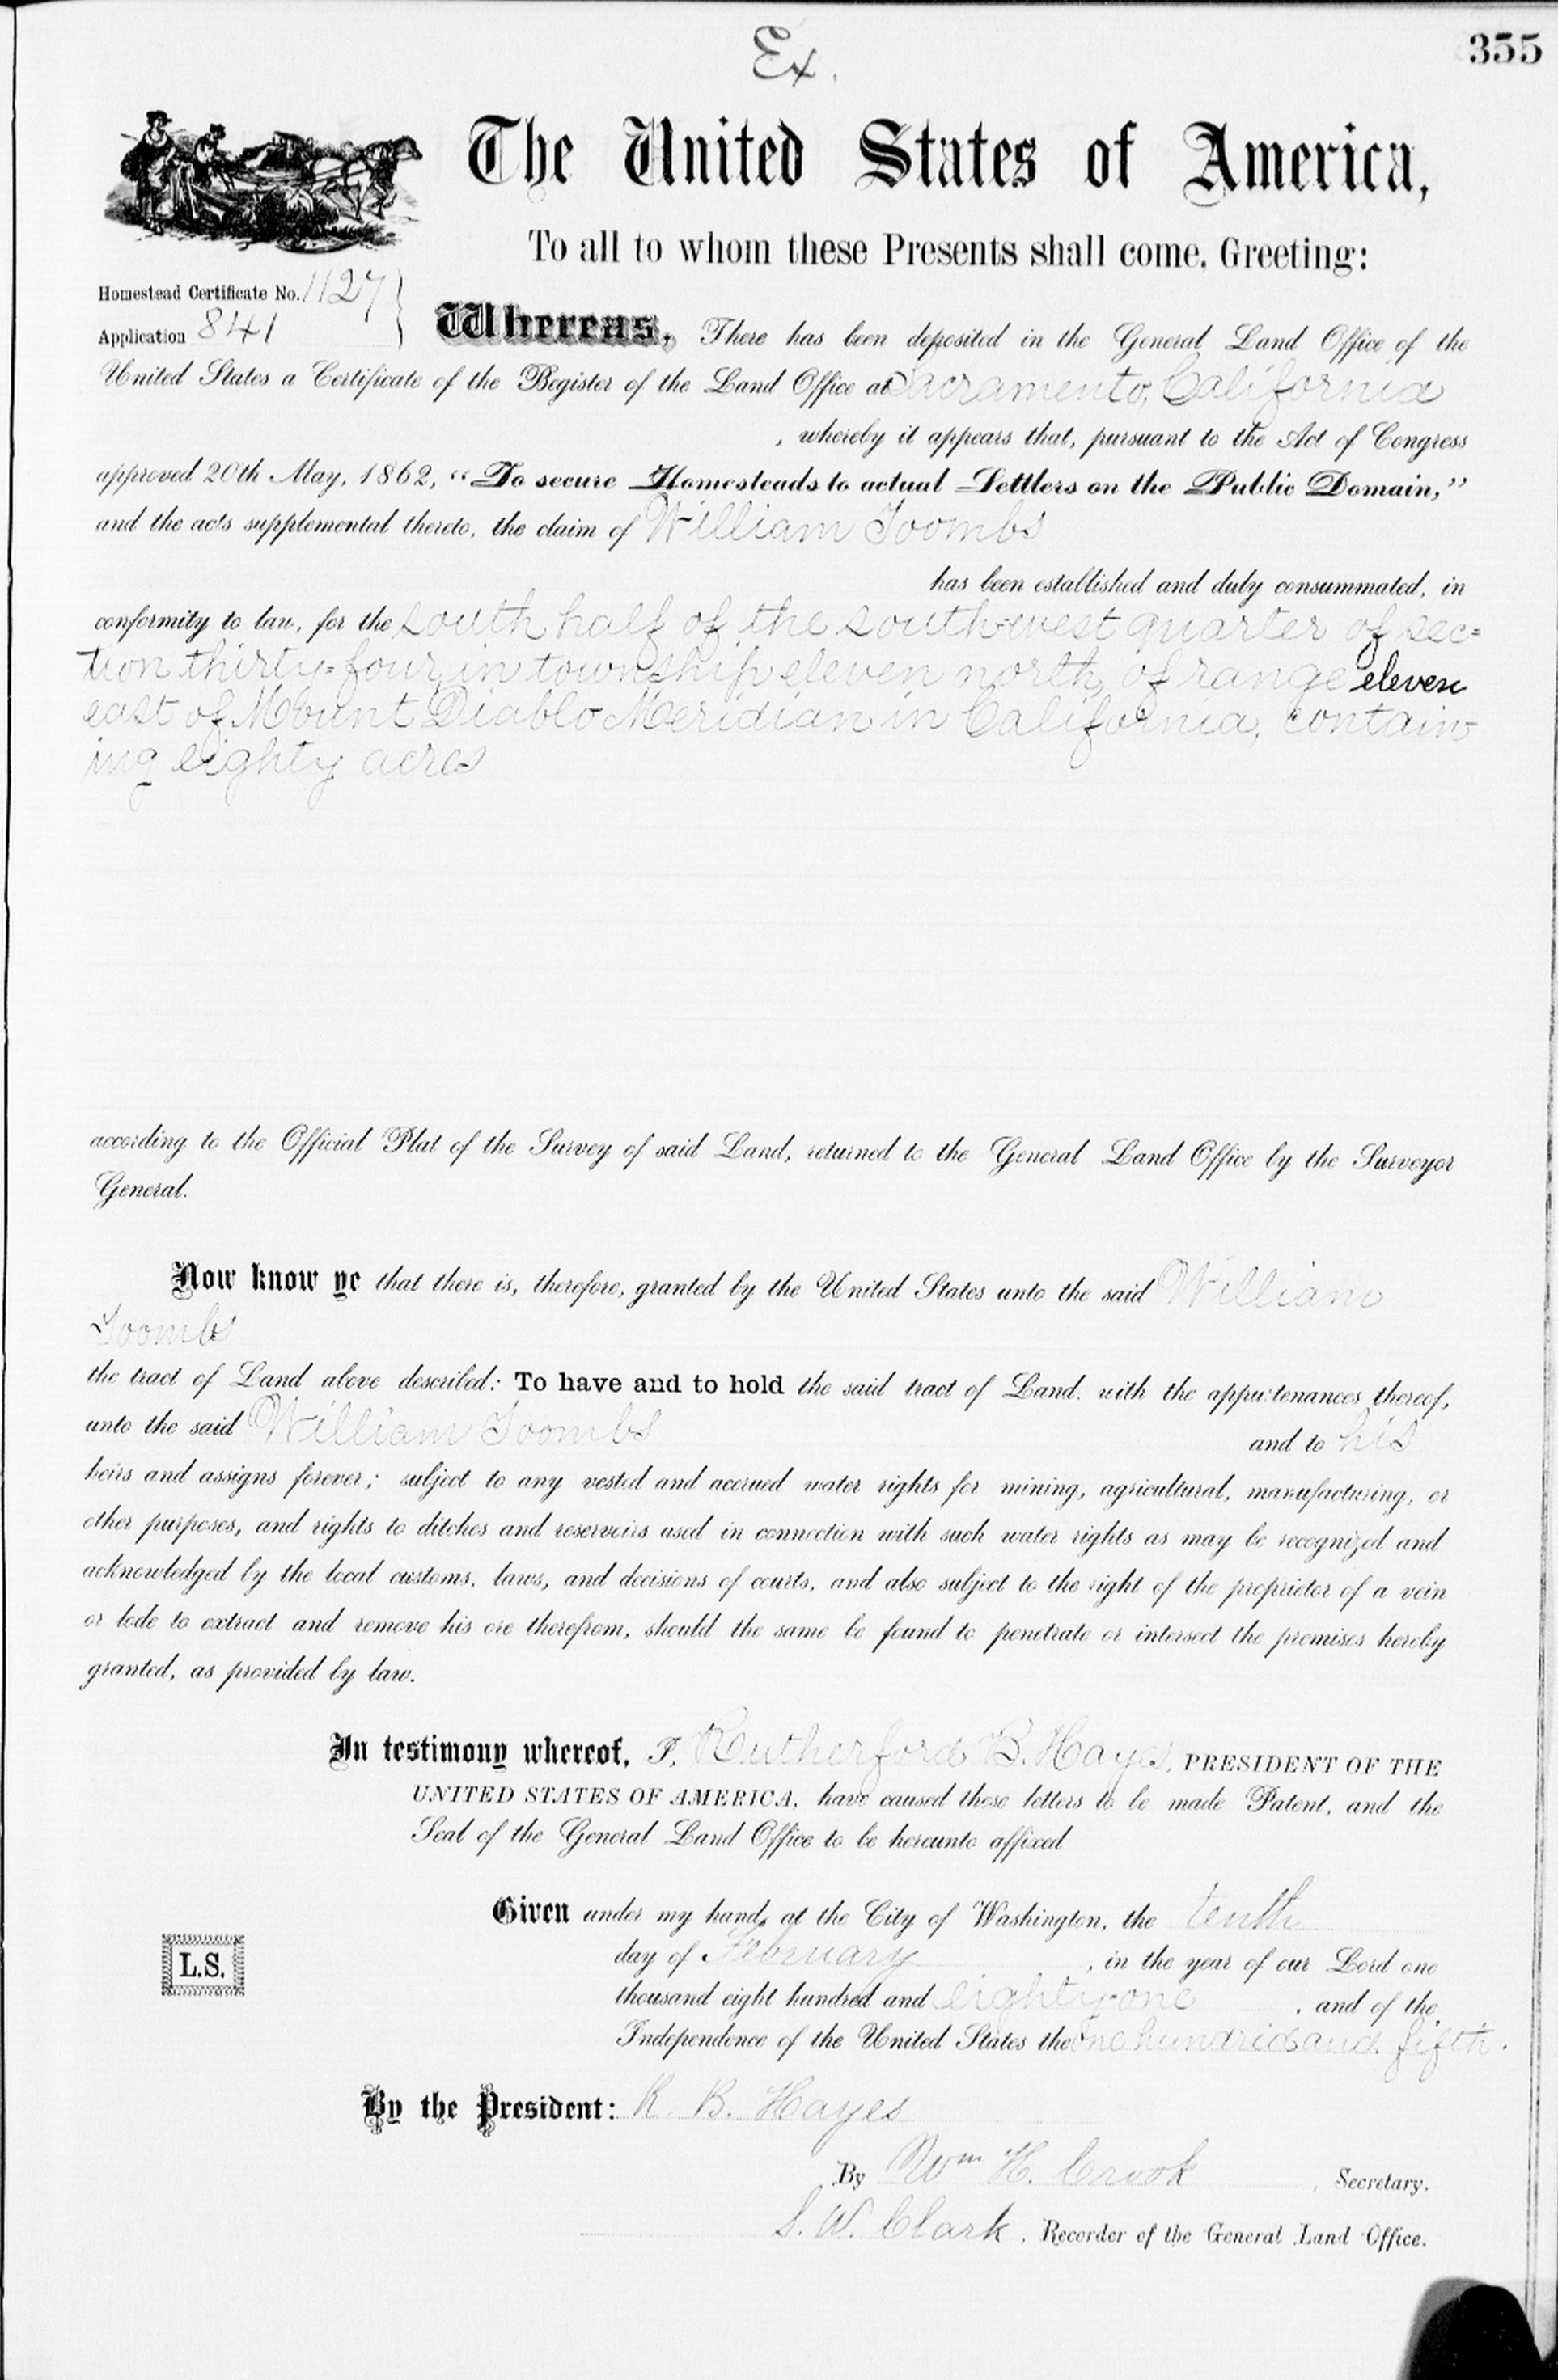 Ex.
355
The United States of America,
To all to whom these Presents shall come, Greeting:
Homestead Certificate No. 1127
Application 841
Whereas, There has been deposited in the General Land Office of the
United States a Certificate of the Register of the Land Office at Sacramento, California
, whereby it appears that, pursuant to the Act of Congress
approved 20th May, 1862, “To secure Homesteads to actual Settlers on the Public Domain,”
and the acts supplemental thereto, the claim of William Toombs
has been established and duly consummated, in
conformity to law, for the south half of the south-west quarter of sec=
tion thirty=four, in township eleven north, of range eleven
east of Mount Diablo Meridian in California, contain-
ing eighty acres
according to the Official Plat of the Survey of said Land, returned to the General Land Office by the Surveyor
General.
Now know ye that there is, therefore, granted by the United States unto the said William
Toombs
the tract of Land above described: To have and to hold the said tract of Land, with the appurtenances thereof,
unto the said William Toombs and to his
heirs and assigns forever; subject to any vested and accrued water rights for mining, agricultural, manufacturing, or
other purposes, and rights to ditches and reservoirs used in connection with such water rights as may be recognized and
acknowledged by the local customs, laws, and decisions of courts, and also subject to the right of the proprietor of a vein
or lode to extract and remove his ore therefrom, should the same be found to penetrate or intersect the premises hereby
granted, as provided by law.
In testimony whereof, I, Rutherford B. Hayes, PRESIDENT OF THE
UNITED STATES OF AMERICA, have caused these letters to be made Patent, and the
Seal of the General Land Office to be hereunto affixed
Given under my hand, at the City of Washington, the tenth
day of February, in the year of our Lord one
thousand eight hundred and eighty-one, and of the
Independence of the United States the one hundred and fifth.
L.S.
By the President: R. B. Hayes
By Wm H. Crook, Secretary.
S. W. Clark, Recorder of the General Land Office.